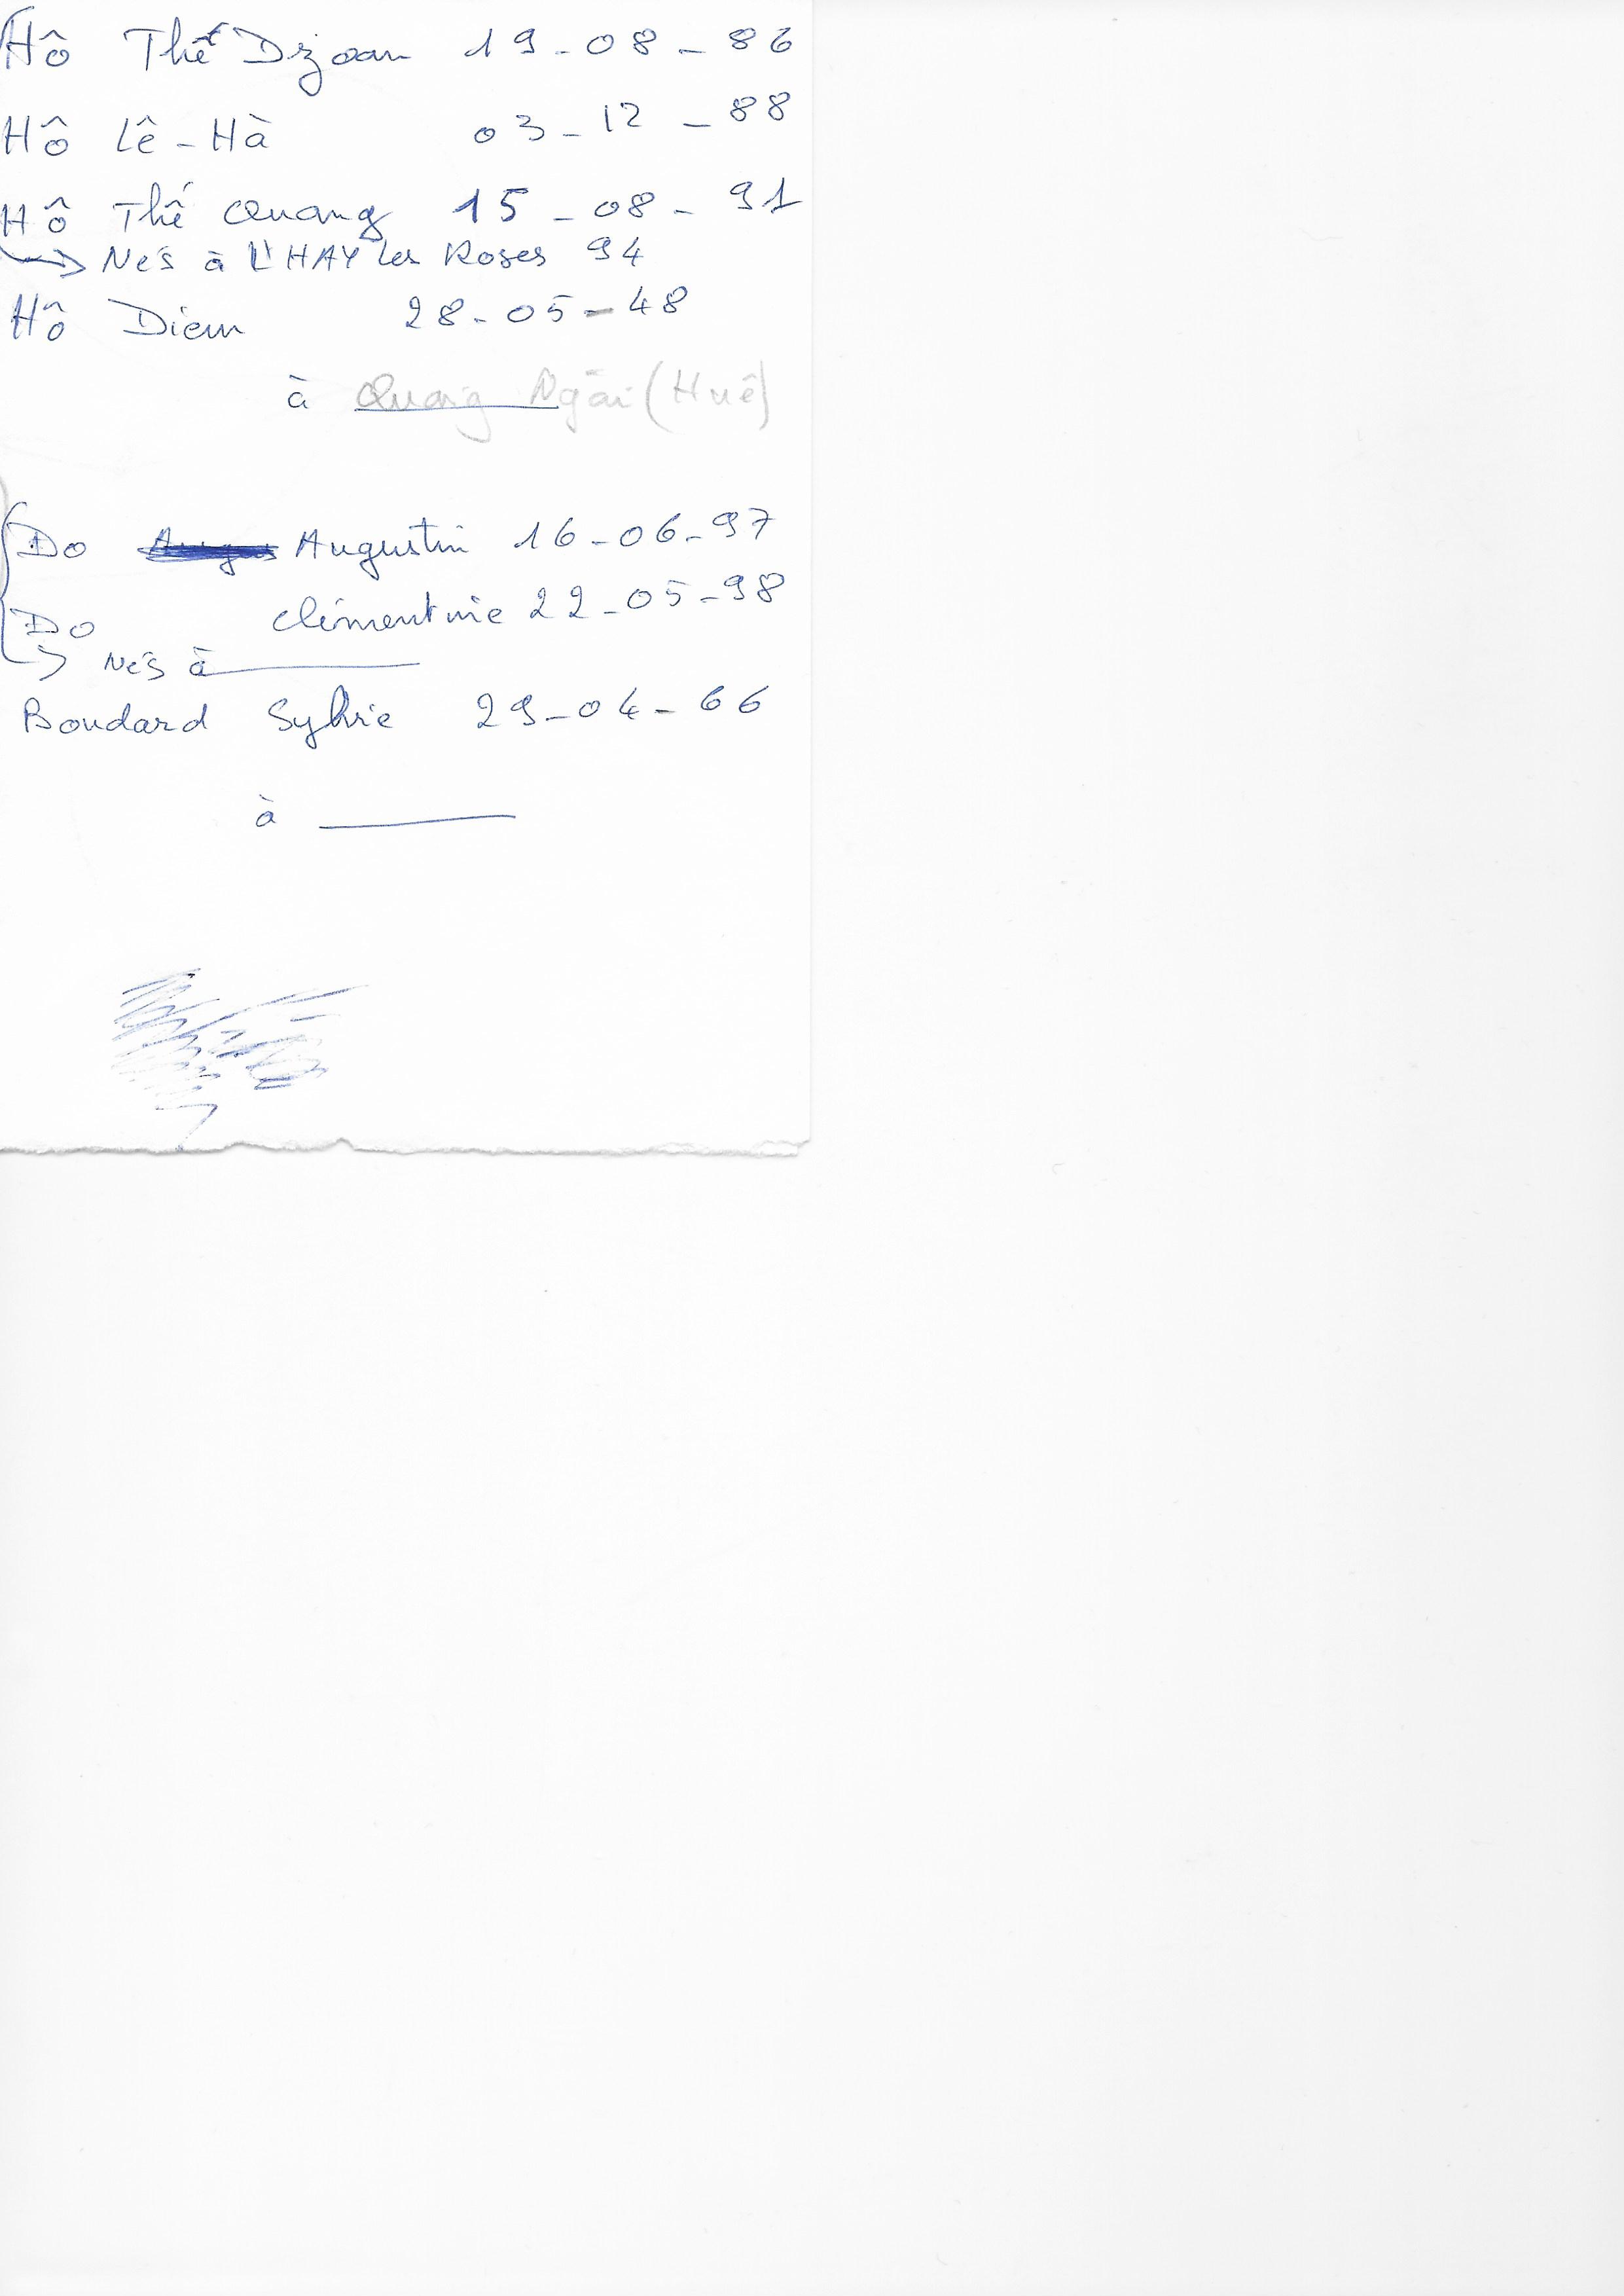 Hô Thế Dzoan 19-08-86
Hô Lê-Hà 03-12-88
Hô Thế Quang 15-08-91
→ Nés à L'HAY les Roses 94
Hô Diem 28-05-48
à Quang Ngãi (Huê)
Do Augustin 16-06-97
Do Clémentine 22-05-98
→ Nés à
Boudard Sylvie 29-04-66
à